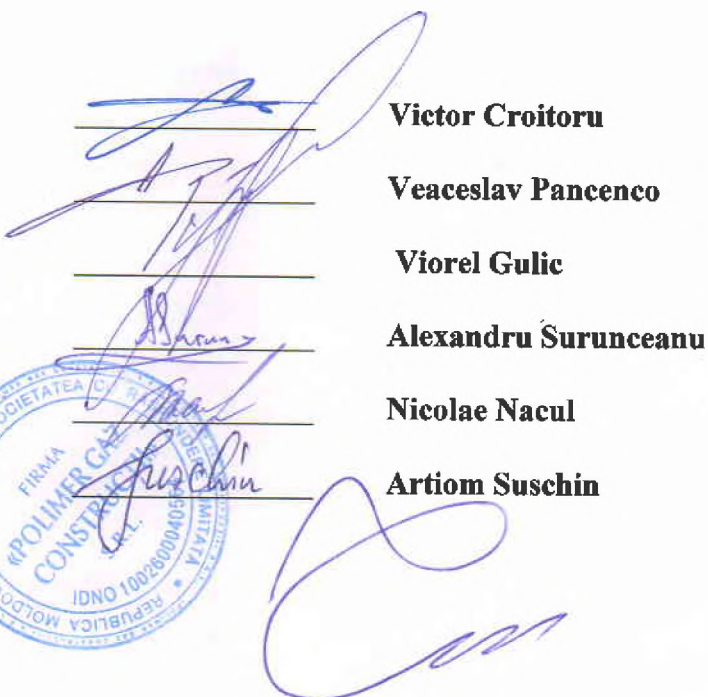 Victor Croitoru
Veaceslav Pancenco
Viorel Gulic
Alexandru Surunceanu
Nicolae Nacul
Suschin Artiom Suschin
SOCIETATEA CU RĂSPUNDERE LIMITATĂ
FIRMA
«POLIMER GAZ
CONSTRUCȚII»
S.R.L.
IDNO
REPUBLICA MOLDOVA